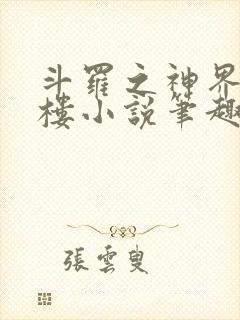 斗羅之神界
樓小說筆趣
張雲叟